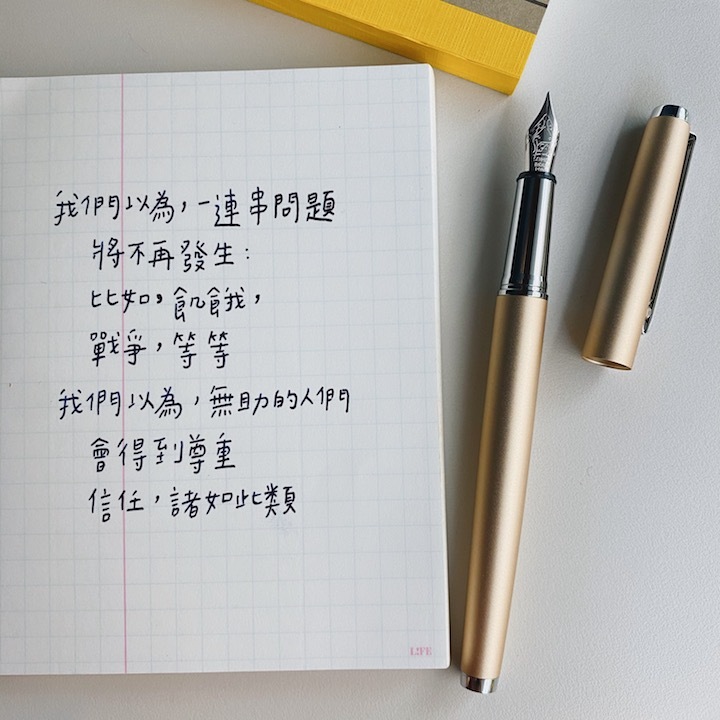 我們以為，一連串問題
將不再發生：
比如，飢餓，
戰爭，等等
我們以為，無助的人們
會得到尊重
信任，諸如此類
L!FE